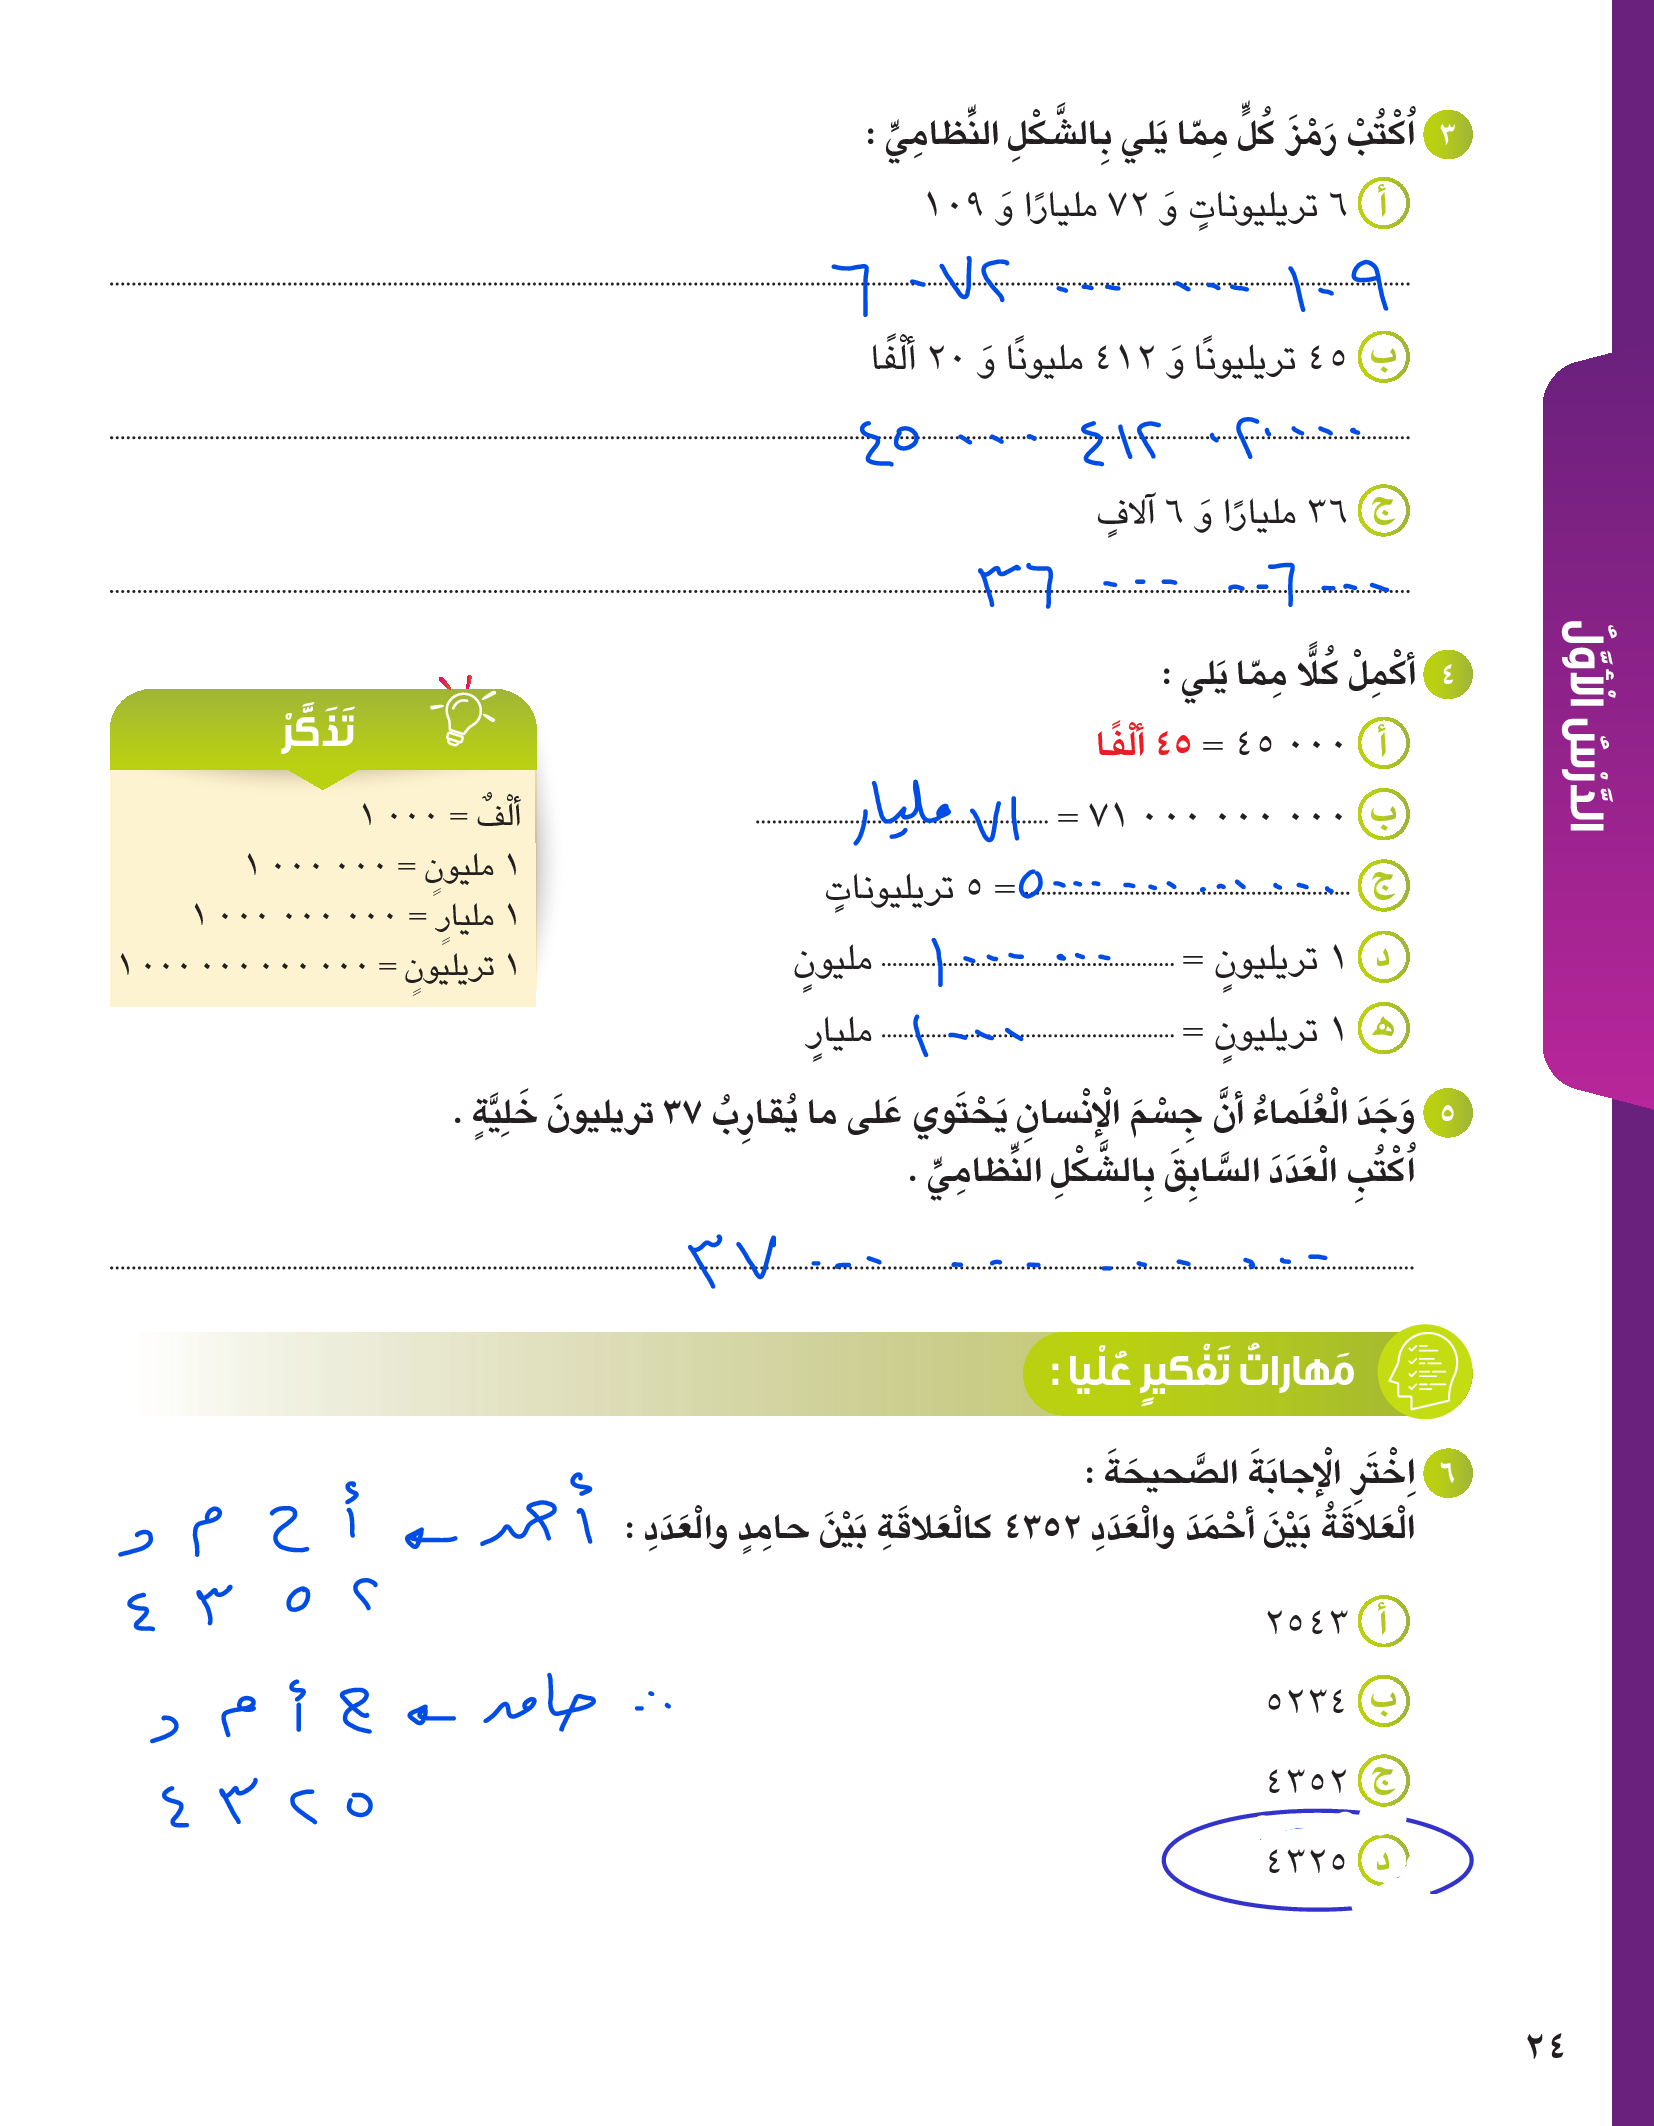 ٣ اُكْتُبْ رَمْزَ كُلٍّ مِمّا يَلي بِالشَّكْلِ النِّظامِيِّ :
أ ٦ تريليوناتٍ وَ ٧٢ مليارًا وَ ١٠٩
٦ ٠٧٢ ٠٠٠ ٠٠٠ ١٠٩
ب ٤٥ تريليونًا وَ ٤١٢ مليونًا وَ ٢٠ ألْفًا
٤٥ ٠٠٠ ٤١٢ ٠٢٠ ٠٠٠
ج ٣٦ مليارًا وَ ٦ آلافٍ
٣٦ ٠٠٠ ٠٠٦ ٠٠٠
٤ أكْمِلْ كُلًّا مِمّا يَلي :
أ ٤٥ ٠٠٠ = ٤٥ ألْفًا
ب ٧١ ٠٠٠ ٠٠٠ ٠٠٠ = ٧١ مليار
ج ٥ ٠٠٠ ٠٠٠ ٠٠٠ ٠٠٠ = ٥ تريليوناتٍ
د ١ تريليونٍ = ١ ٠٠٠ ٠٠٠ مليونٍ
هـ ١ تريليونٍ = ١ ٠٠٠ مليارٍ
تَذَكَّرْ
ألْفٌ = ١ ٠٠٠
١ مليونٍ = ١ ٠٠٠ ٠٠٠
١ مليارٍ = ١ ٠٠٠ ٠٠٠ ٠٠٠
١ تريليونٍ = ١ ٠٠٠ ٠٠٠ ٠٠٠ ٠٠٠
الدَّرْسُ الْأَوَّلُ
٥ وَجَدَ الْعُلَماءُ أنَّ جِسْمَ الْإنْسانِ يَحْتَوي عَلى ما يُقارِبُ ٣٧ تريليونَ خَلِيَّةٍ .
اُكْتُبِ الْعَدَدَ السَّابِقَ بِالشَّكْلِ النِّظامِيِّ .
٣٧ ٠٠٠ ٠٠٠ ٠٠٠ ٠٠٠
مَهاراتُ تَفْكيرٍ عُلْيا :
٦ اِخْتَرِ الْإجابَةَ الصَّحيحَةَ :
الْعَلاقَةُ بَيْنَ أحْمَدَ والْعَدَدِ ٤٣٥٢ كالْعَلاقَةِ بَيْنَ حامِدٍ والْعَدَدِ :
أ ٢٥٤٣
ب ٥٢٣٤
ج ٤٣٥٢
د ٤٣٢٥
أحمد ← أ ح م د
٤ ٣ ٥ ٢
∴ حامد ← ح أ م د
٤ ٣ ٢ ٥
٢٤